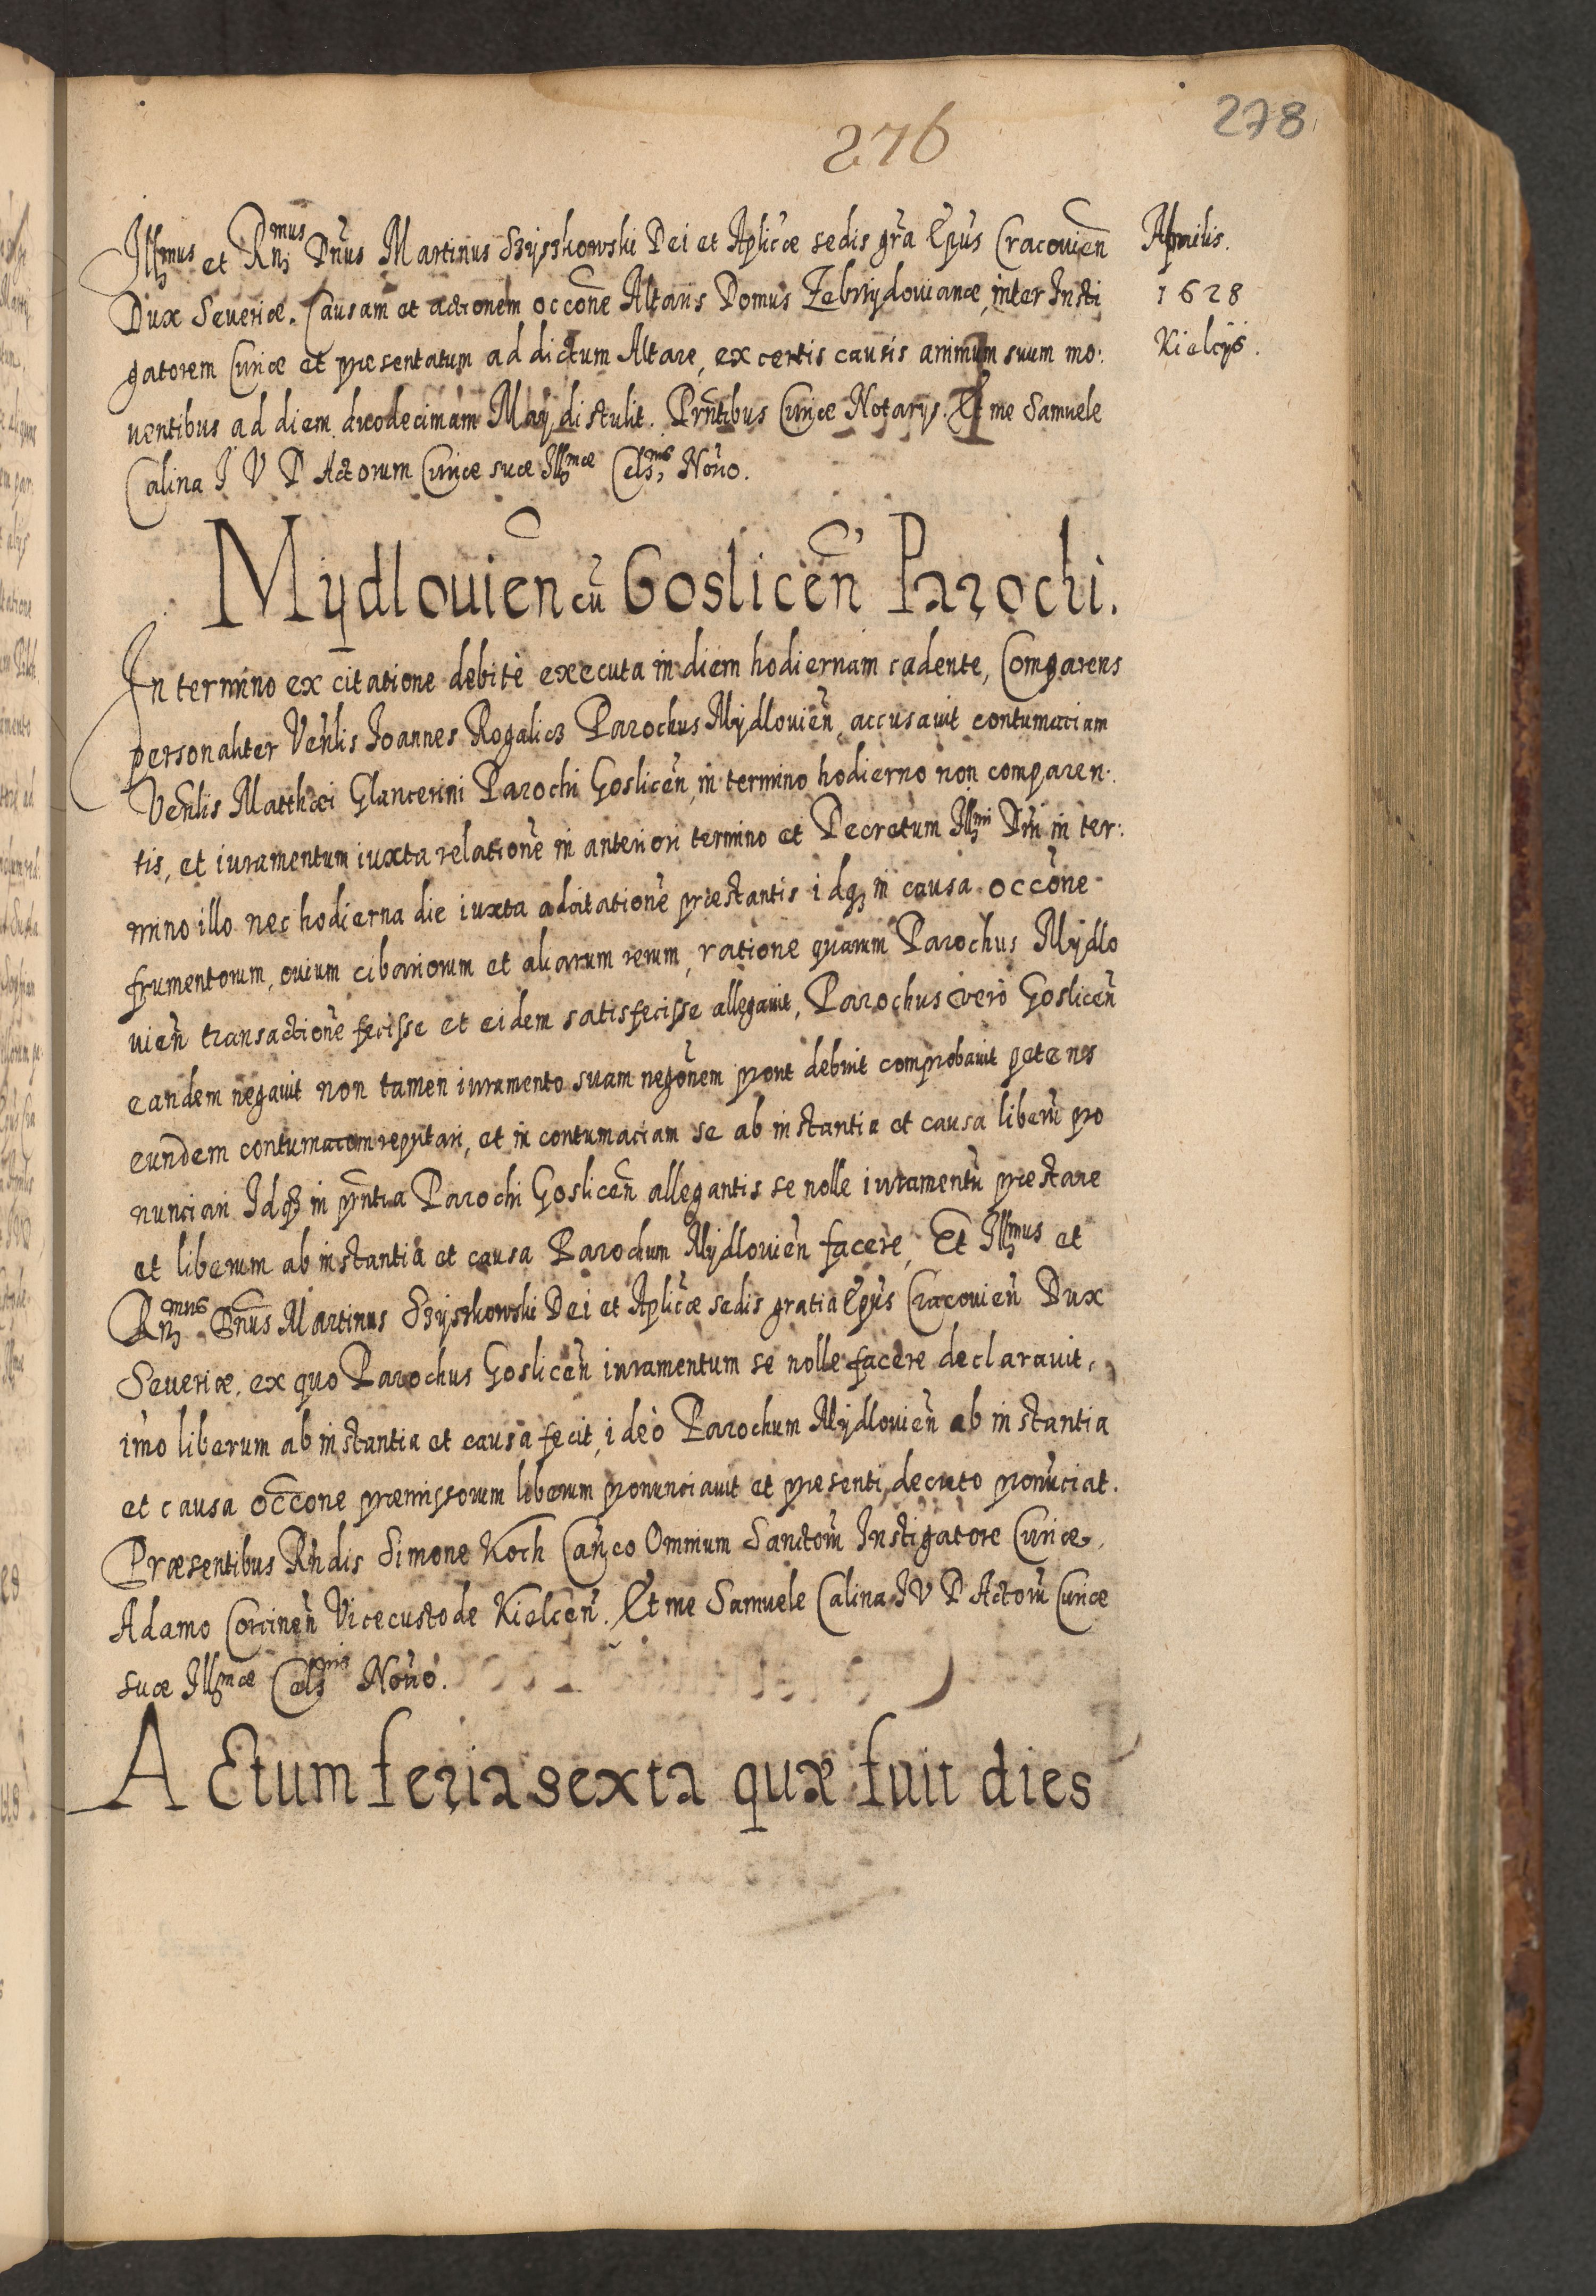 278
276
Illmus et Rnmus Dnus Martinus Szyszkowski Dei et Aplicæ sedis gra Epus Cracouien
Aprilis.
Dux Seueriæ. Causam et actionem occone Altaris Domus Zebrzydouianæ, inter Insti
1628
gatorem Curiæ et presentatum ad dictum Altare, ex certis causis animum suum mo:
Kielcys.
uentibus ad diem duodecimam Maÿ distulit. Prntibus Curiæ Notarys. Et me Samuele
Calina I V D Actorum Curiæ suæ Illmæ Celsnis Norio.
Mydlouien cu Goslicen Parochi.
In termino ex citatione debitè executa in diem hodiernam cadente, Comparens
personaliter Venlis Ioannes Rogalicz Parochus Mydlouien, accusauit contumaciam
Venlis Matthæi Glancerini Parochi Goslicen, in termino hodierno non comparen:
tis, et iuramentum iuxta relatione in anteriori termino et Decretum Illmi Dni in ter:
mino illo nec hodierna die iuxta adcitatione præstantis idq in causa occone
frumentorum, ouium cibariorum et aliarum rerum, ratione quarum Parochus Mydlo
uien transactione fecisse et eidem satisfecisse allegauit, Parochus vero Goslicen
eandem negauit non tamen iuramento suam negonem prout debuit comprobauit petens
eundem contumacem reputari, et in contumaciam se ab instantia et causa liberu pro
nunciari Idq in pntia Parochi Goslicen allegantis se nolle iuramentu præstare
et liberum ab instantia et causa Parochum Mydlouien facere, Et Illmus et
Rnmus Dnus Martinus Szyszkowski Dei et Aplicæ sedis gratia Epus Cracouien Dux
Seueriæ, ex quo Parochus Goslicen iuramentum se nolle facere declarauit,
imo liberum ab instantia et causa fecit, ideò Parochum Mydlouien ab instantia
et causa occone præmissorum liberum pronunciauit et presenti decreto pronuciat.
Præsentibus Rndis Simone Koch Canco Omnium Sanctoru Instigatore Curiæ,
Adamo Corcinen Vicecustode Kielcen. Et me Samuele Calina I V D Actoru Curiæ
suæ Illmæ Celsnis Norio.
Actum feria sexta quæ fuit dies